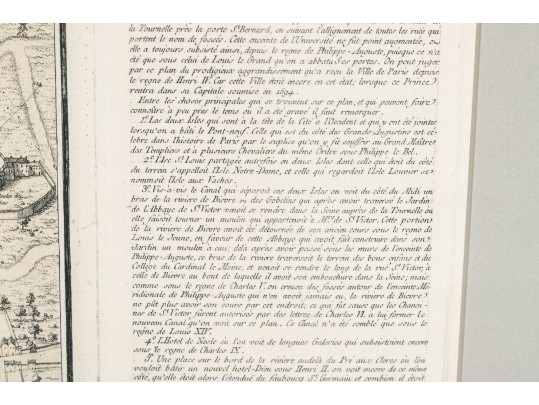 la Tournelle près la porte St. Bernard, en suivant l'allignement de toutes les ruës qui
portent le nom de fossés. Cette enceinte de l'Université ne fut point augmentée, ou
elle a toujours subsisté ainsi, depuis le regne de Philippe-Auguste, puisque ce n'a
été que sous celui de Louis le Grand qu'on a abbatu ses portes. On peut juger
par ce plan du prodigieux aggrandissement qu'a reçu la Ville de Paris depuis
le regne de Henri IV. Car cette Ville étoit encore en cet état, lorsque ce Prince
rentra dans sa Capitale soumise en 1594.
Entre les choses principales qui se trouvent sur ce plan, et qui peuvent faire
connoître à peu près le tems où il a été gravé il faut remarquer.
1°. Les deux Isles qui sont à la tête de la Cité à l'Occident et que y ont été jointes
lorsqu'on a bâti le Pont-neuf. Celle qui est du côté des Grands-Augustins est cé-
lebre dans l'histoire de Paris par le suplice qu'on y fit souffrir au Grand Maître
des Templiers et à plusieurs Chevaliers du même Ordre sous Philippe le Bel.
2°. L'Isle St. Louis partagée autrefois en deux Isles dont celle qui étoit du côté
du terrein s'appelloit l'Isle Notre-Dame, et celle qui regardoit l'Isle Louvier se
nommoit l'Isle aux Vaches.
3°. Vis-à-vis le Canal qui séparoit ces deux Isles on voit du côté du Midi un
bras de la riviere de Bievre ou des Gobelins qui après avoir traversé le Jardin
de l'Abbaye de St. Victor venoit se rendre dans la Seine auprès de la Tournelle où
elle faisoit tourner un moulin qui appartenoit à Mrs. de St. Victor. Cette portion
de la riviere de Bievre avoit été détournée de son ancien cours sous le regne de
Louis le Jeune, en faveur de cette Abbaye qui avoit fait construire dans son
Jardin un moulin à eau; delà après avoir passé sous les murs de l'enceinte de
Philippe-Auguste, ce bras de la riviere traversoit le terrein des bons enfans et du
College du Cardinal le Moine, et venoit se rendre le long de la ruë St. Victor, à
celle de Bievre au bout de laquelle il avoit son embouchure dans la Seine, mais
comme sous le regne de Charles V. on creusa des fossés autour de l'enceinte Mé-
ridionale de Philippe Auguste qui n'en avoit jamais eu, la riviere de Bievre
ne pût plus avoir son cours par cet endroit, ce qui fut cause que les Chanoi-
nes de St. Victor furent autorisés par des lettres de Charles VI. à lui former le
nouveau Canal qu'on voit sur ce plan. Ce Canal n'a été comblé que sous le
regne de Louis XIV.
4°. L'Hotel de Nesle où l'on voit de longues Galeries qui subsistoient encore
sous le regne de Charles IX.
5°. Une place sur le bord de la riviere audelà du Pré aux Clercs où l'on
vouloit bâtir un nouvel hotel-Dieu sous Henri II. on voit encore de ce même
côté, qu'elle étoit alors l'étenduë du fauboucg St. Germain et combien il étoit